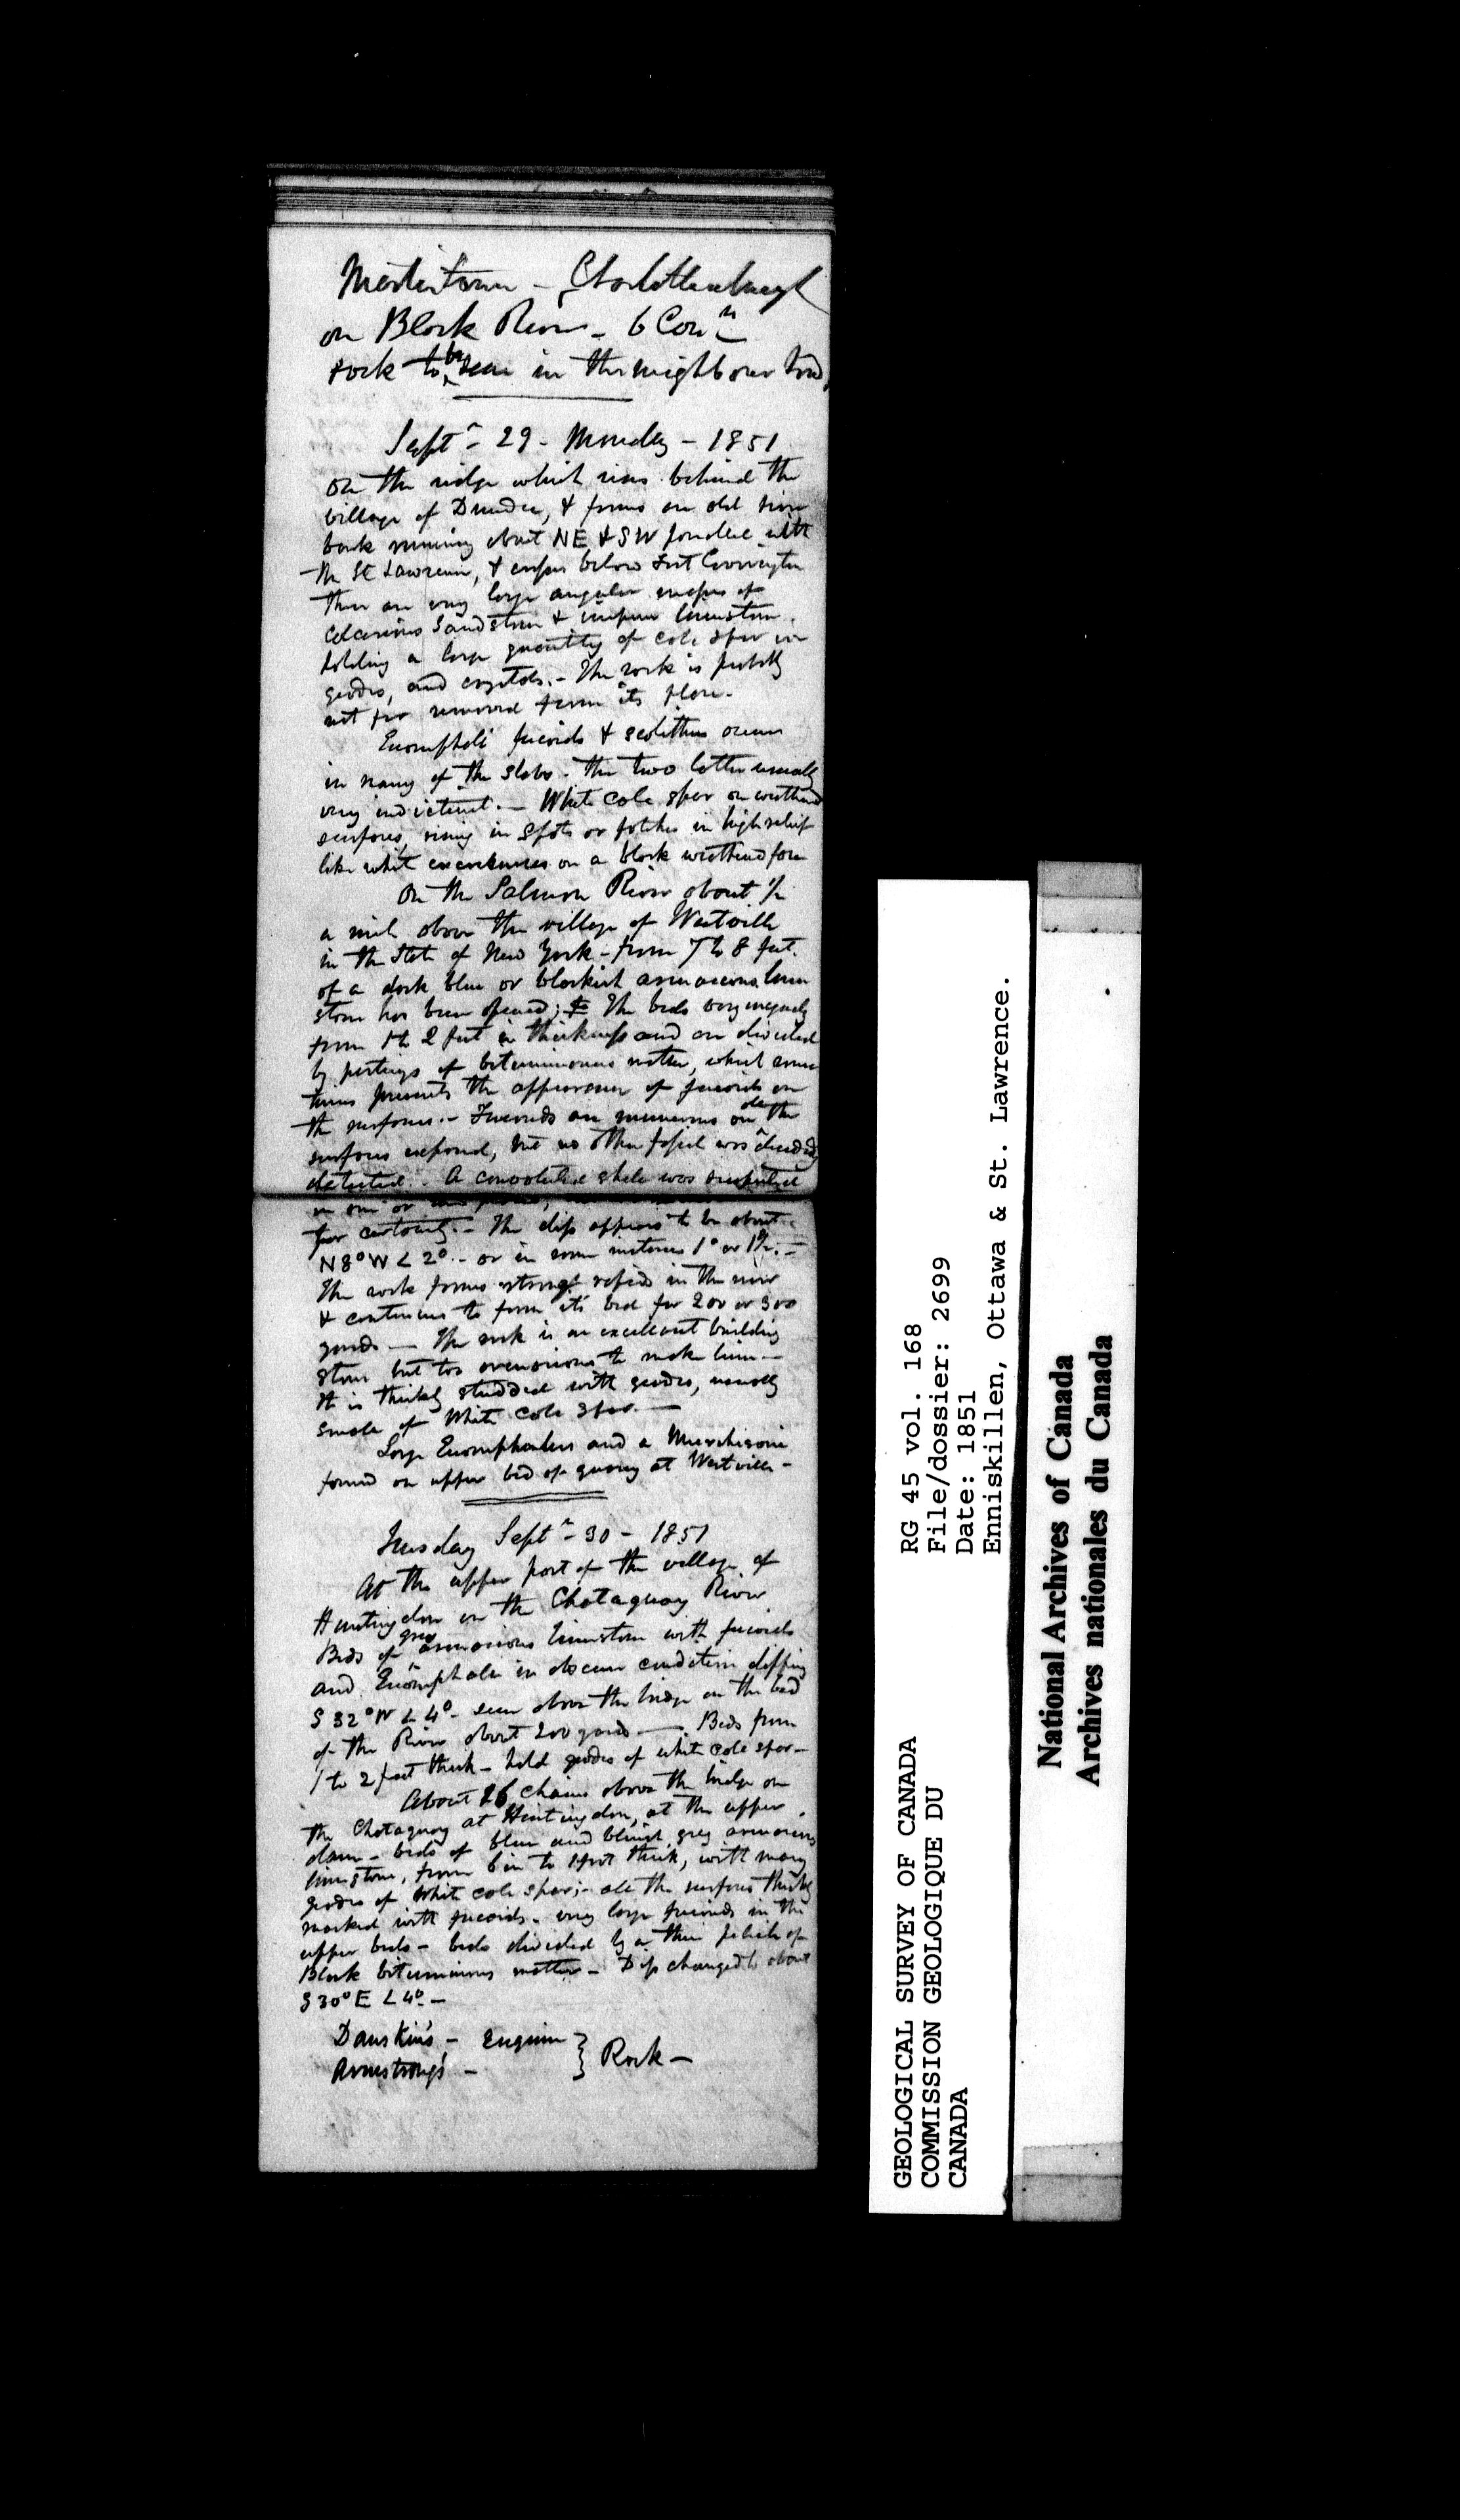 Martintown - Charlottenburgh
on Black River - 6 Con n
rock to be seen in the neighbourhood
Septr 29 - Monday - 1851
On the ridge which rises behind the
village of Dundee, & forms an old river
bank running about NE & SW parallel with
the St Lawrence, & crosses below Fort Covington
there are very large angular masses of
calcareous sandstone & impure limestone,
holding a large quantity of calc spar in
geodes, and crystals. - The rock is probably
not far removed from its place.
Euomphali fucoids & scolithus occur
in many of the slabs. The two latter usually
very indistinct. - White calc spar on weathered
surfaces, rising in spots or patches in high relief
like white excrescences on a black weathered face
On the Salmon River about 1/2
a mile above the village of Westville
in the State of New York - from 7 to 8 feet.
of a dark blue or blackish arenaceous lime
stone has been opened; The beds vary
from 1 to 2 feet in thickness and are divided
by partings of bituminous matter, which some
times presents the appearance of fucoids on
the surfaces. - Fucoids are numerous on all the
surfaces exposed, but no other fossil was decidedly
detected. - A convoluted shell was suspected
in one or
for certainty. - The dip appears to be about
N 8° W < 2° - or in some instances 1° or 1½. -
The rock forms strong rapids in the river
& continues to form its bed for 200 or 300
yards - The rock is an excellent building
stone but too arenaceous to make lime -
It is thickly studded with geodes, usually
small of white calc spar. -
Large Euomphalus and a Murchisonia
found on upper bed of quarry at Westville -
Tuesday Septr 30 - 1851
At the upper part of the village of
Huntingdon on the Chataguay River
Beds of grey arenaceous limestone with fucoids
and Euomphali in obscure condition dipping
S 32° W < 4° - seen above the bridge on the bed
of the River about 200 yards - Beds from
1 to 2 feet thick - hold geodes of white calc spar -
About 26 chains above the bridge on
the Chataguay at Huntingdon, at the upper
dam - beds of blue and bluish grey arenaceous
limestone, from 6 in to 1 foot thick, with many
geodes of white calc spar; - all the surfaces thickly
marked with fucoids. very large fucoids in the
upper beds - beds divided by a thin pellicle of
Black bituminous matter - Dip changed to about
S 30° E < 4° -
Danskin's - Enquire } Rock -
Armstrong's -
RG 45 vol. 168
File/dossier: 2699
Date: 1851
Enniskillen, Ottawa & St. Lawrence.
GEOLOGICAL SURVEY OF CANADA
COMMISSION GEOLOGIQUE DU
CANADA
National Archives of Canada
Archives nationales du Canada